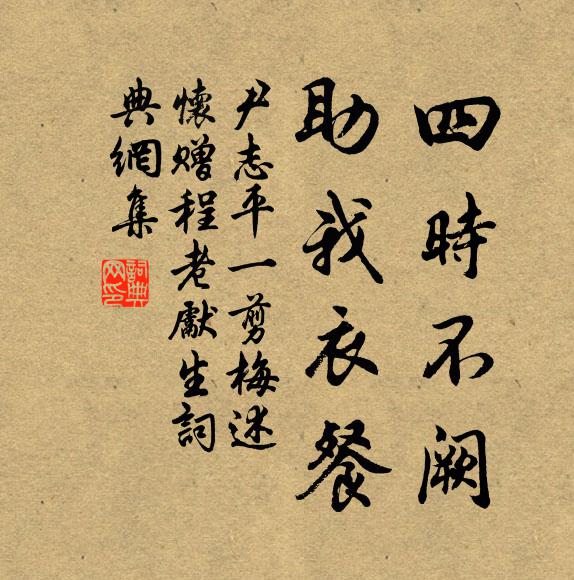 四時不闕
助我衣餐
尹志平一剪梅述
懷贈程老獻生詞
典網集
詞典網印